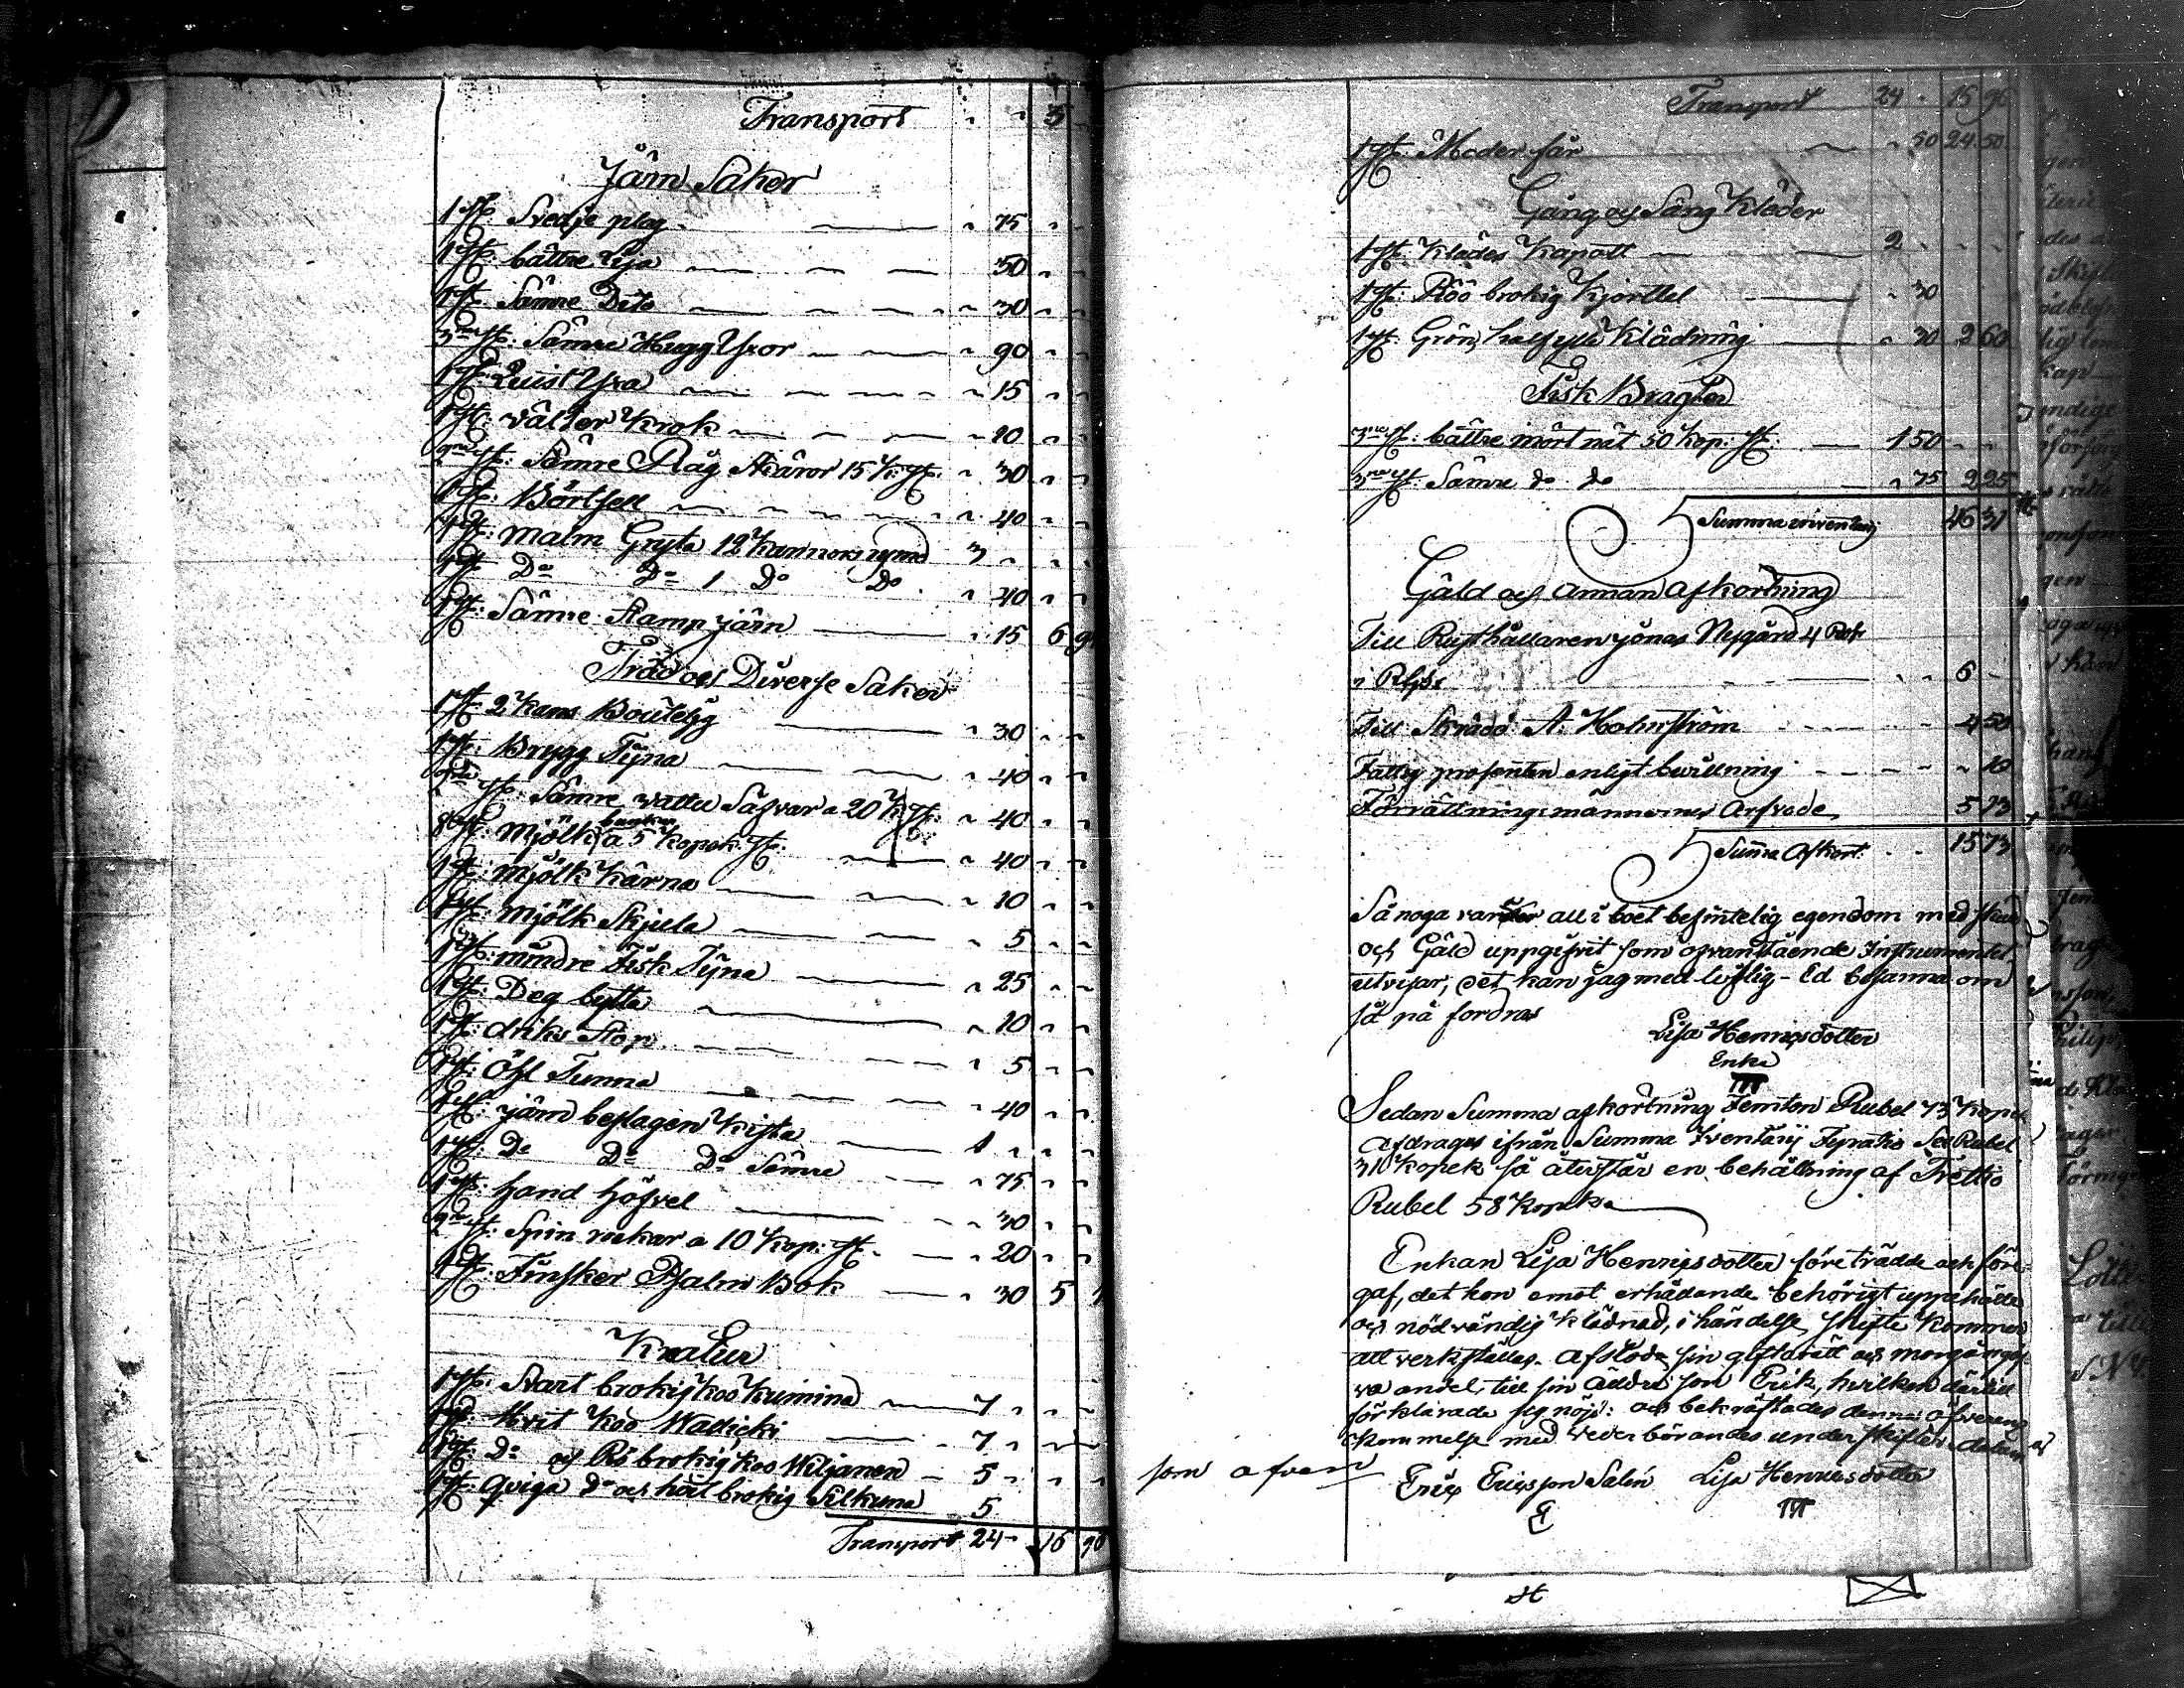 Transport " " 5
Järn Saker
1 st: Svedje plog — " 75 " "
1 st: bättre Lija — 50 " "
1 st: Sämre Dito — " 30 " "
3ne st: Sämre Hugg Yxor — " 90 " "
1 st: Quist Yxa — " 15 " "
1 st: välter Krok — " 10 " "
2ne st: Sämre Råg Skäror 15 K. st: " 30 " "
1 st: Börtsell — " 40 " "
1 st: Malm Gryta 12 Kannors rymd 3 " " "
1 st Do Do 1 Do Do " 40 " "
1 st: Sämre Stamp järn — " 15 6
Träd och Diverse Saker
1 st 2 Kans Boutelg — " 30 " "
1 st: Brygg Tyna — " 40 " "
2ne st: Sämre vattu Såfvar a 20 K st: " 40 " "
8 st: Mjölk bunkar a 5 Kopek st: — " 40 " "
1 st: Mjölk Kärna — " 10 " "
1 st: Mjölk Skjula — " 5 " "
1 st: mindre Fisk Tyna — " 25 " "
1 st: Deg bytta — " 10 " "
1 st: driks Stop — " 5 " "
1 st: Öhl Tunna — " 40 " "
1 st: järn beslagen Kista — 1 " " "
1 st: Do Do Do Sämre — " 75 " "
1 st: hand höfvel — " 30 " "
2ne st: Spin rockar a 10 Kop: st: — " 20 " "
1 st: Finsker Psalm Bok — " 30 5
Kreatur
1 st: Svart brokig koo Kuimina — 7 " " "
1 st: Hvit Koo Wallicki — " 7 " "
1 st: Do och Rö brokig koo Wiljanen — 5 " " "
1 st: Qviga Do och hvit brokig Silkuna 5
Transport 24 " 16 96
Transport 24 " 15 96
1 st: Moder får — " 50 24 50
Gång och Säng Kläder
1 st: Klädes Kapott — 2 " " "
1 st: Röö brokig Kjorttel — " 30
1 st: Grön halfylle Klädning — " 30 2 60
Fisk Bragder
3ne st: bättre mört nät 50 Kop: st: — 1 50 " "
3ne st: Sämre do do — " 75 2 25
Summa inventarij 46 31
Gäld och annan afkortning
Till Rusthållaren Jonas Nygård 4 Rub
i Rgds — 6 "
Till Skrädd: A: Holmström — 4 50
Fattig prosenten enligt bevillning — " 10
Förrättningsmännernes Arfvode 5 13
Summa Afkort: " " 15 73
Så noga varder all i boet befintelig egendom med skuld
och Gäld uppgifvit som ofvanstående Instrumentet
utvisar, det kan jag med liflig Ed besanna om
så på fordras
Lisa Henricsdotter
Enka
Sedan Summa afkortning Femton Rubel 73 Kopek
afdrages ifrån Summa Inventarij Fyratio Sex Rubel
31 Kopek så återstår en behållning af Trettio
Rubel 58 Kopek
Enkan Lisa Henricsdotter företrädde och före-
gaf, det hon emot erhådande behörigt uppehälle
och nödvändig Klädnad, i händelse skifte Kommer
att verkställas. afstode sin giftorätt och morgångåf-
va andel, till sin äldre son Erik, hvilken därtill
förklarade sig nöjd: och bekräftades denna öfverens
kommelse med vederbörandes underskrifter
som ofvan
Eric Ericsson Salin Lisa Henricsdotter
E